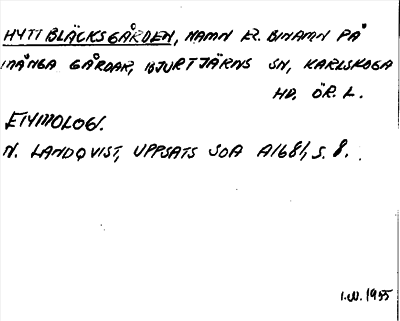 HYTTBLÄCKSGÅRDEN, NAMN EL. BINAMN PÅ
MÅNGA GÅRDAR, BJURTJÄRNS SN, KARLSKOGA
HD. ÖR. L.
ETYMOLOGI.
N. LANDQVIST, UPPSATS SOA A1681, S. 8.
I.W. 1955